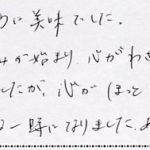 に美味でした。
が始まり、心がわき
したが、心がほっと
一時になりました。あ